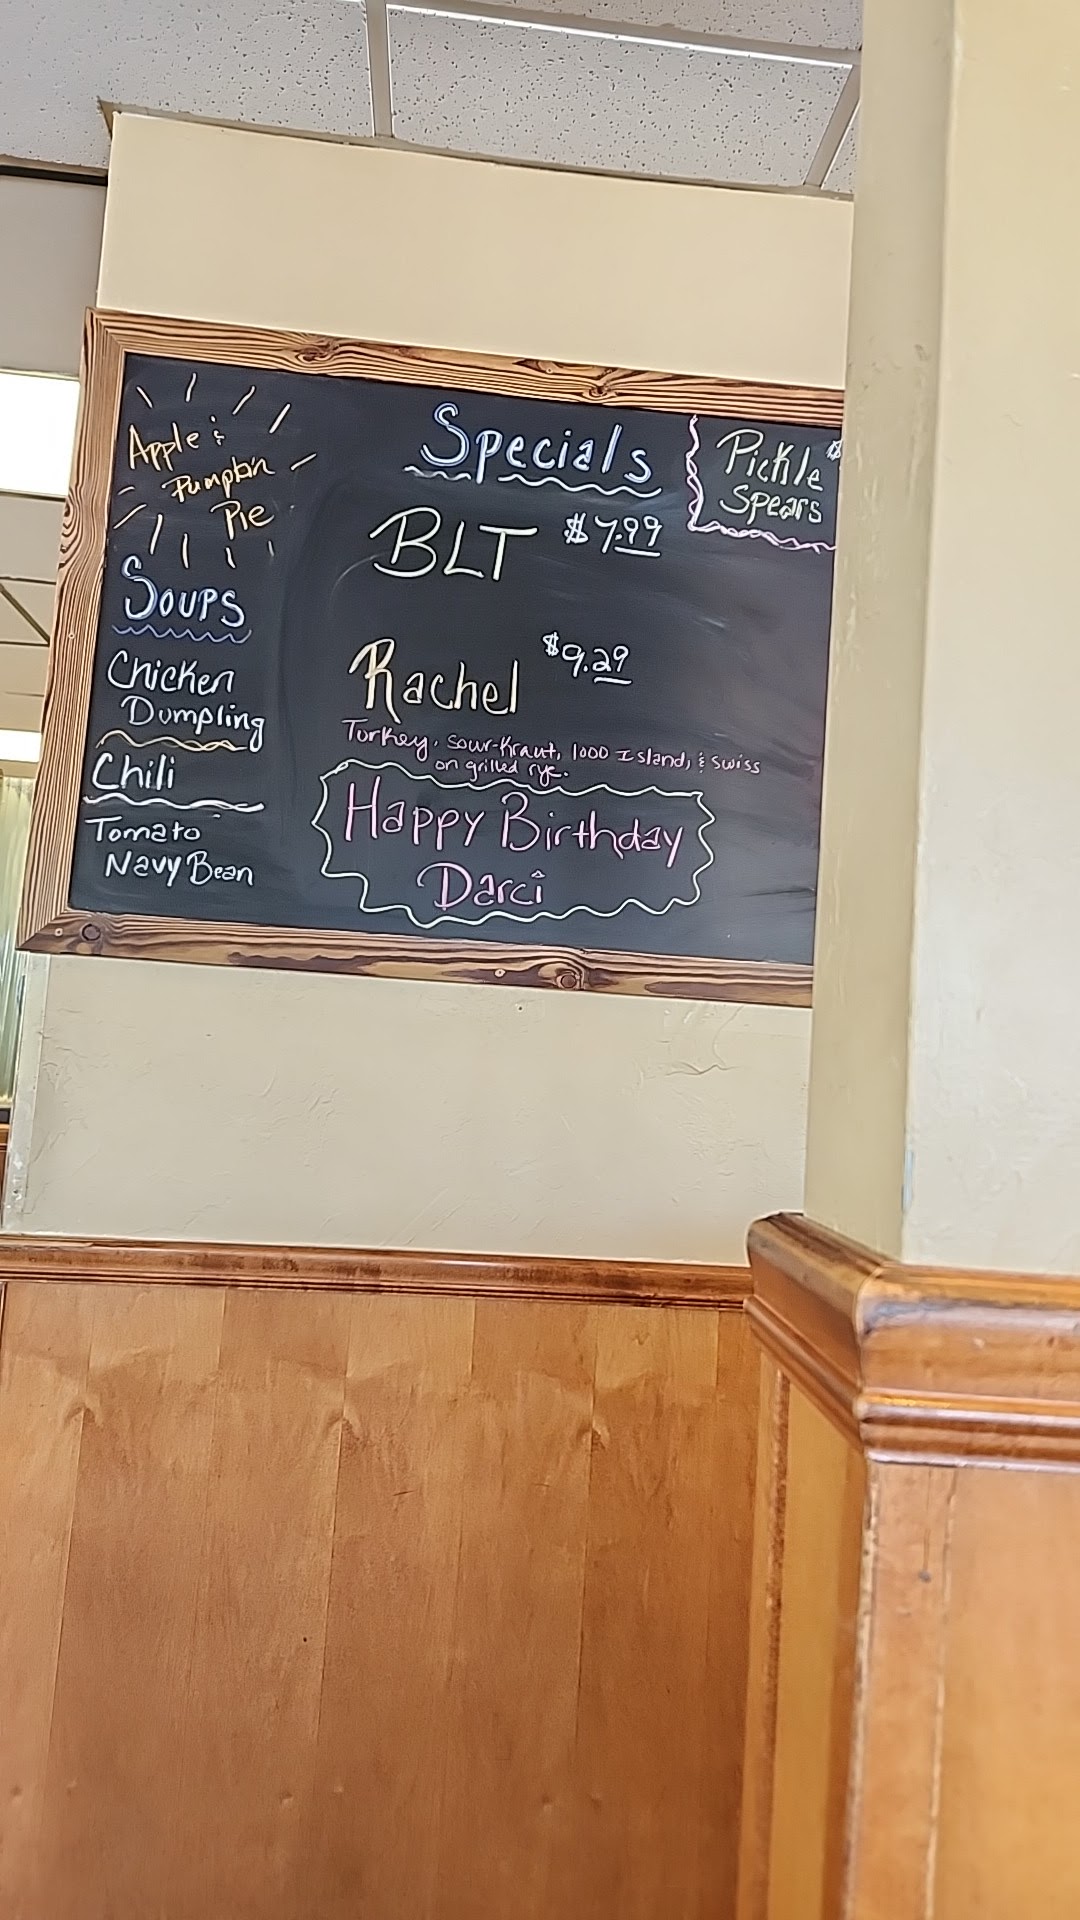 Apple &
Pumpkin
Pie
Soups
Chicken
Dumpling
Chili
Tomato
Navy Bean
Specials
BLT $7.99
Rachel $9.29
Turkey, Sour-Kraut, 1000 Island, & Swiss
on grilled rye.
Happy Birthday
Darci
Pickle $
Spears